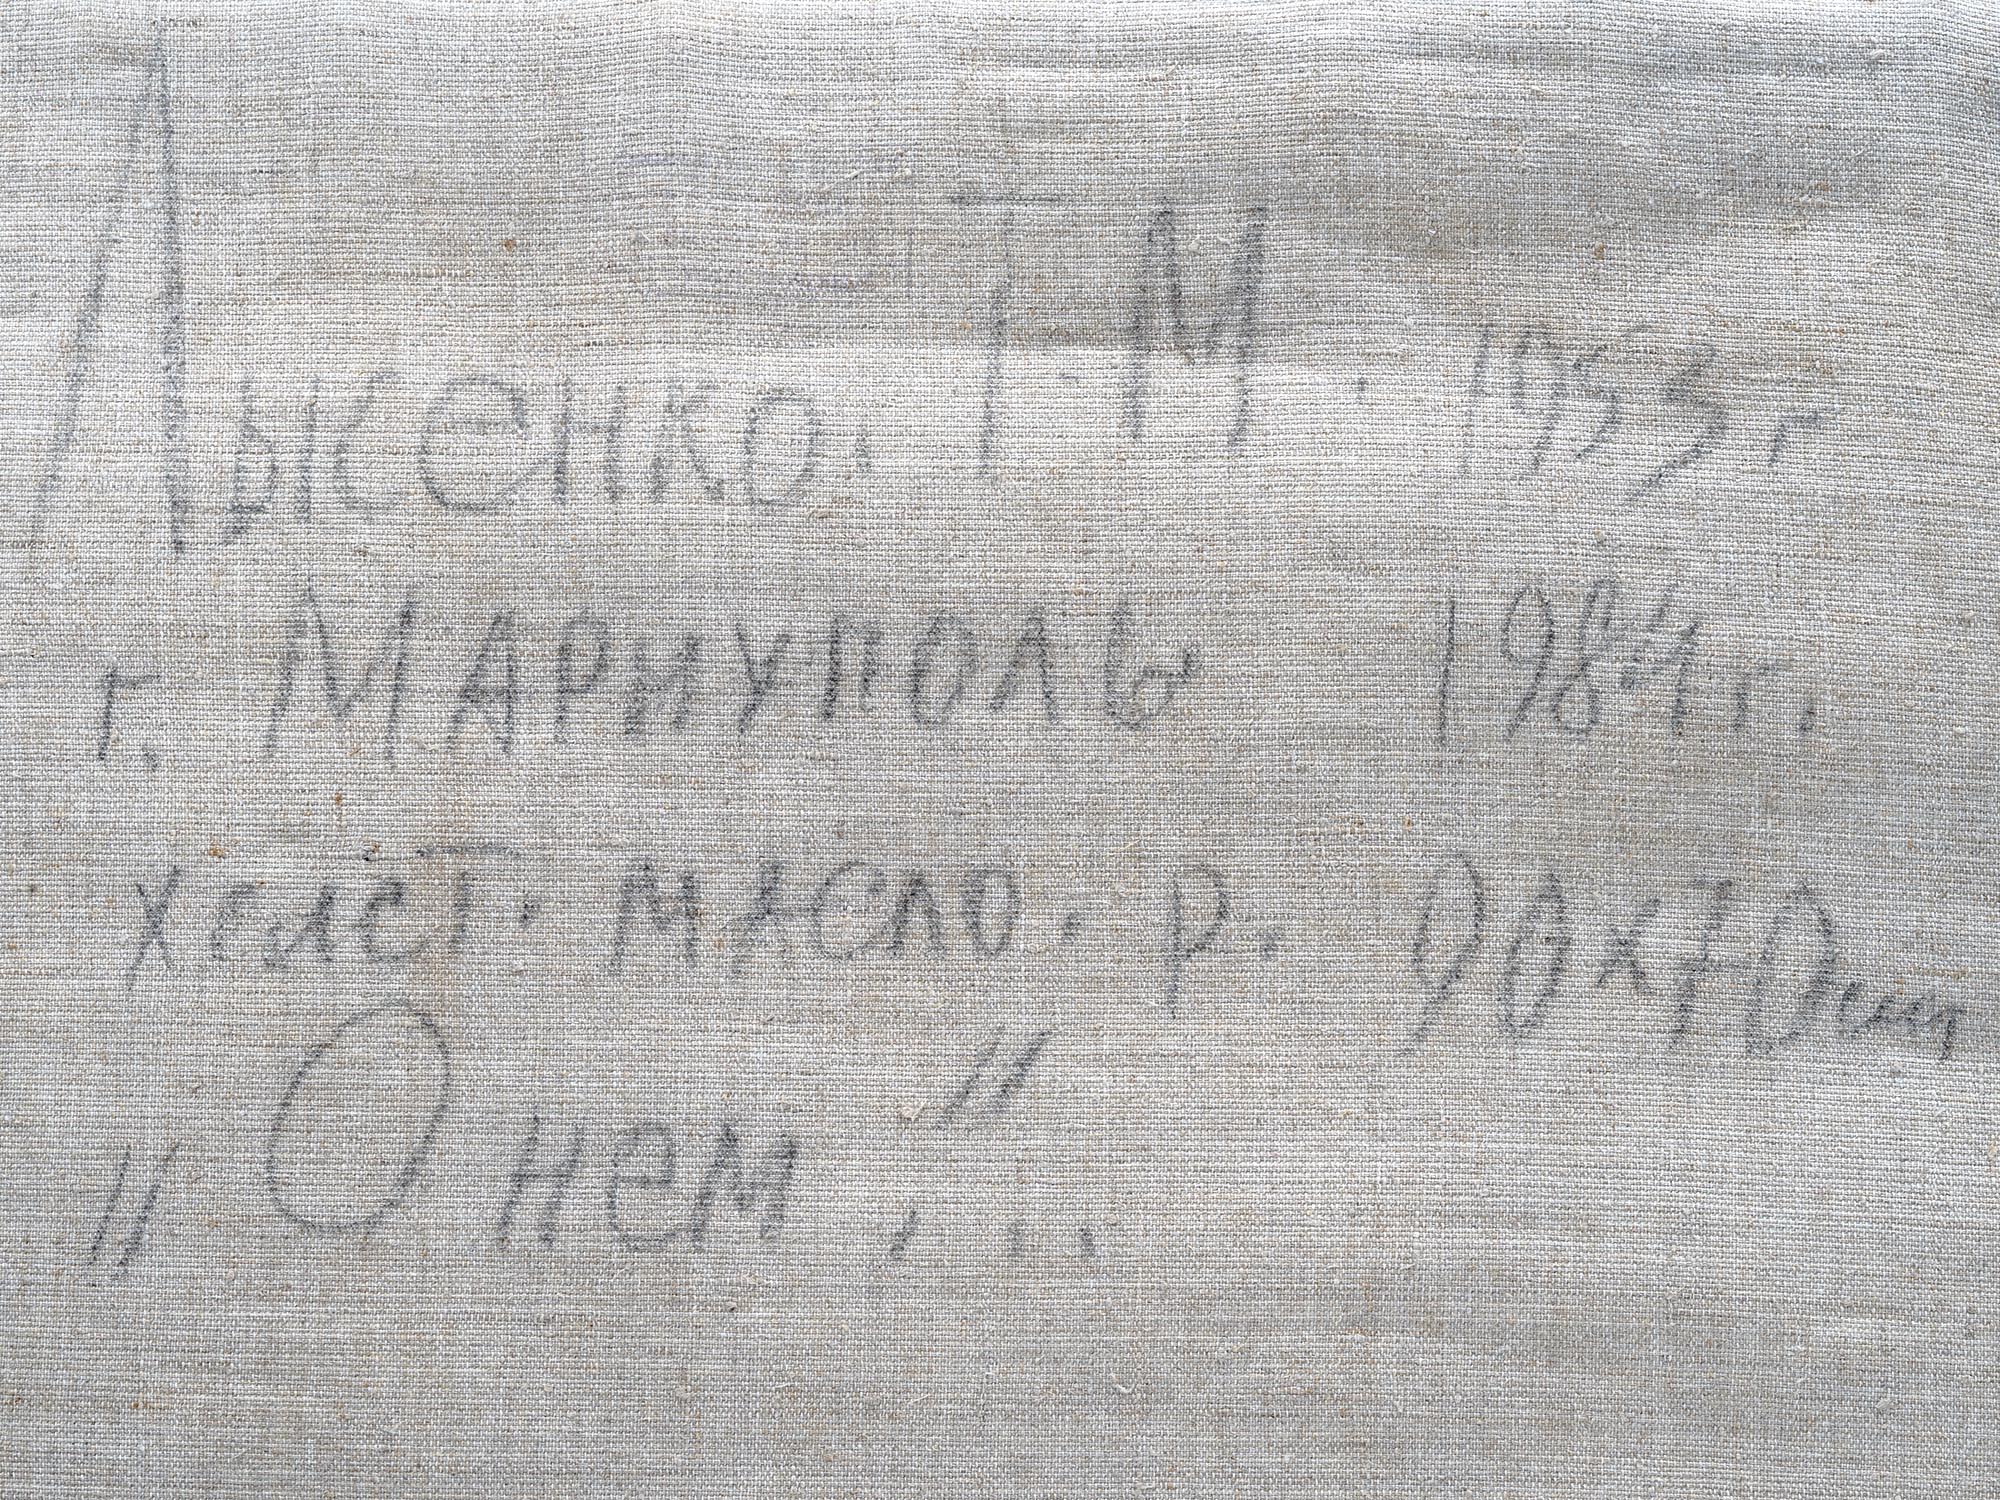 Лысенко, Г. М. 1953 г
г. Мариуполь 1984 г.
холст. масло. р. 90х70 см
"О нем"...